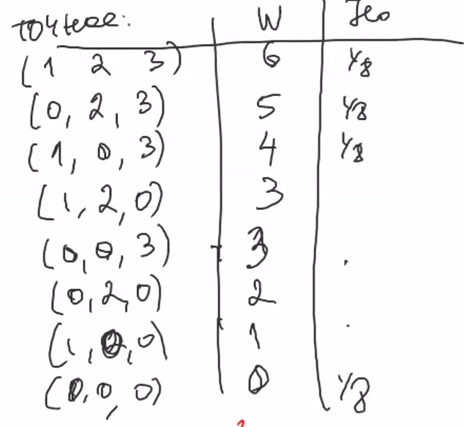 точные: W H₀
(1 2 3) 6 1/8
(0, 2, 3) 5 1/8
(1, 0, 3) 4 1/8
(1, 2, 0) 3
(0, 0, 3) 3 .
(0, 2, 0) 2
(1, 0, 0) 1 .
(0, 0, 0) 0 1/8